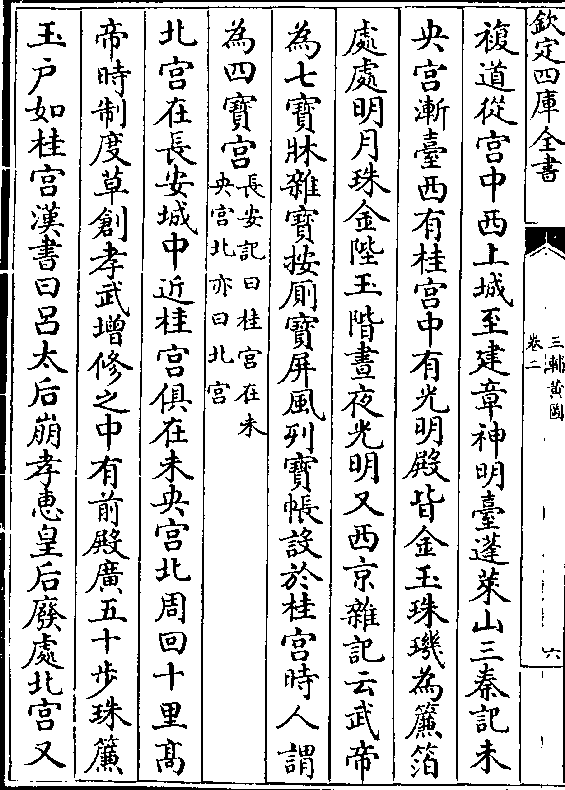 欽定四庫全書
三輔黃圖
卷二
六
複道從宫中西上城至建章神明臺蓬萊山三秦記未
央宫漸臺西有桂宫中有光明殿皆金玉珠璣為簾箔
處處明月珠金陛玉階晝夜光明又西京雜記云武帝
為七寳牀雜寳按厠寳屏風列寳帳設於桂宫時人謂
為四寳宫長安記曰桂宫在未
央宫北亦曰北宫
北宫在長安城中近桂宫俱在未央宫北周回十里髙
帝時制度草創孝武增修之中有前殿廣五十步珠簾
玉户如桂宫漢書曰吕太后崩孝惠皇后廢處北宫又